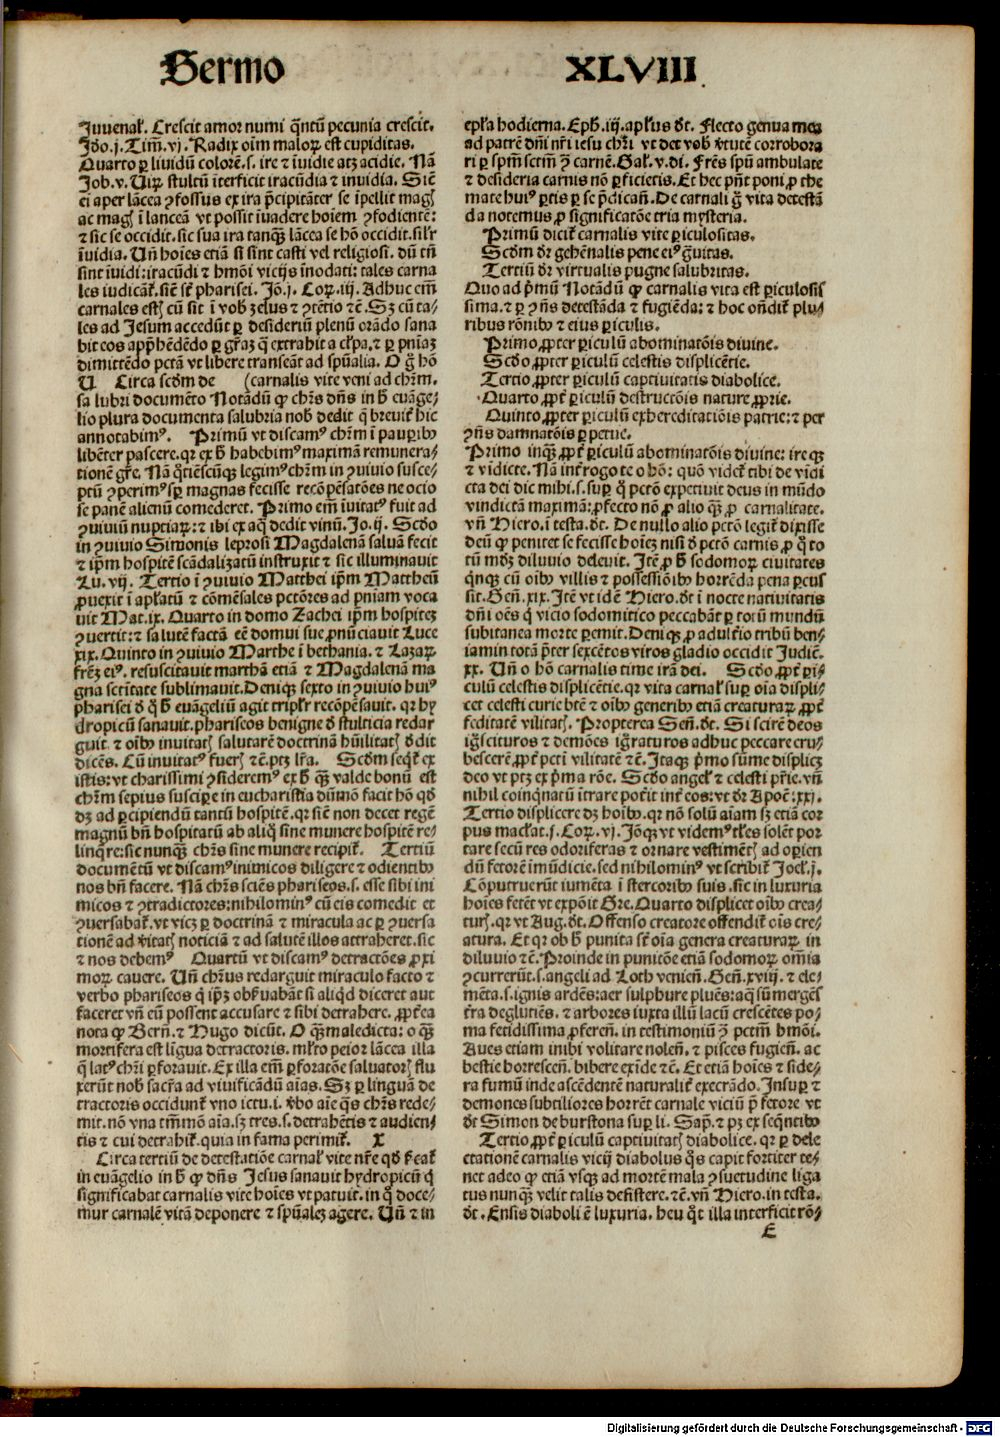 Sermo XLVIII
Juuenal̃. Crescit amor numi q̃ntũ pecunia crescit.
Jdo.j.Tim̃.vj. Radix oĩm maloꝝ est cupiditas.
Quarto ꝑ liuidũ colorẽ.s. ire ⁊ ĩuidie atqꝫ acidie. Nã
Job.v. Uiꝝ stultũ ĩterficit iracũdia ⁊ inuidia. Sic̃
ac magꝭ ĩ lanceã vt possit ĩuadere hoĩem ꝯfodientẽ:
⁊ sic se occidit. sic sua ira tanqꝫ lãcea se hõ occidit. sil'r
ĩuidia. Uñ hoĩes etiã si sint casti vel religiosi. dũ tñ
sint ĩuidi: iracũdi ⁊ hmõi vicijs ĩnodati: tales carna
les iudicãt̃. sic̃ st̃ pharisei. Jõ.j. Coꝝ.iij. Adhuc em̃
carnales estꝭ cũ sit ĩ vob̃ zelus ⁊ ꝯtẽtio ⁊c̃. Sꝫ cũ ta⸗
les ad Jesum accedũt ꝑ desideriũ plenũ orãdo sana
bit eos app̃hẽdẽdo ꝑ gr̃aꝫ q̃ extrahit a cl̃pa. ⁊ ꝑ pñiaꝫ
dimittẽdo pctã vt libere transeãt ad spũalia. O g̃ hõ
U Circa scd̃m de (carnalis vite veni ad chr̃m.
sa lubri documẽto Notãdũ ꝙ chr̃s dñs in h̃ euãge⸗
lio plura documenta salubria nob̃ dedit q̃ breuit̃ hic
annotabim⁹. Primũ vt discam⁹ chr̃m ĩ pauꝑibꝰ
libẽter pascere. qꝛ ex h̃ habebim⁹ maximã remunera⸗
tionẽ gr̃e. Nã q̃tiẽscũqꝫ legim⁹ chr̃m in ꝯuiuio susce⸗
ptũ ꝯperim⁹ sꝑ magnas fecisse recõpẽsatões ne ocio
se panẽ alienũ comederet. Primo em̃ ĩuitat⁹ fuit ad
ꝯuiuiũ nuptiaꝝ: ⁊ ibi ex aq̃ dedit vinũ. Jo.ij. Scd̃o
in ꝯuiuio Simonis leprosi Magdalenã saluã fecit
⁊ ip̃m hospitẽ scãdalizatũ instruxit ⁊ sic illuminauit
Lu.vij. Tertio ĩ ꝯuiuio Matthei ip̃m Mattheũ
ꝓuexit ĩ apl̃atũ ⁊ cõmẽsales pctõres ad pniam voca
uit Mat.ix. Quarto in domo Zachei ip̃m hospiteꝫ
ꝯuertit: ⁊ salutẽ factã eẽ domui sue ꝓnũciauit Luce
xix. Quinto in ꝯuiuio Marthe ĩ bethania. ⁊ Lazaꝝ
fr̃eꝫ ei⁹. resuscitauit marthã etiã ⁊ Magdalenã ma
gna sctĩtate sublimauit. Deniqꝫ sexto in ꝯuiuio hui⁹
pharisei d̃ q̃ h̃ euãgeliũ agit tripl̃r recõpẽsauit. qꝛ hy
dropicũ sanauit. phariseos benigne d̃ stulticia redar
guit. ⁊ oĩbꝰ inuitatꝭ salutarẽ doctrinã hũilitatꝭ d̃dit
dicẽs. Cũ inuitat⁹ fuerꝭ ⁊c̃. ptꝫ lr̃a. Scd̃m seqt̃ ex
istis: vt charissimi ꝯsiderem⁹ ex h̃ qꝫ valde bonũ est
chr̃m sepius suscipe in eucharistia dũmõ facit hõ qd̃
dꝫ ad ꝑcipiendũ tantũ hospitẽ. qꝛ sic̃ non decet regẽ
magnũ bñ hospitatũ ab aliq̃ sine munere hospitẽ re⸗
linq̃re: sic nunqꝫ chr̃s sine munere recipit̃. Tertiũ
documẽtũ vt discam⁹ inimicos diligere ⁊ odientibꝰ
nos bñ facere. Nã chr̃s sciẽs phariseos.s. esse sibi ini
micos ⁊ ꝯtradictores: nihilomin⁹ cũ eis comedit et
ꝯuersabat̃. vt vicꝫ ꝑ doctrinã ⁊ miracula ac ꝑ ꝯuersa
tionẽ ad ṽitatꝭ noticiã ⁊ ad salutẽ illos attraheret. sic
⁊ nos debem⁹ Quartũ vt discam⁹ detractões ꝓxi
moꝝ cauere. Uñ chr̃us redarguit miraculo facto ⁊
verbo phariseos q̃ ip̃ꝫ obẽruabãt si aliqd̃ diceret aut
faceret vñ eũ possent accusare ⁊ sibi detrahere. ꝓpt̃ea
nota ꝙ Berñ. ⁊ Hugo dicũt. O qꝫ maledicta: o qꝫ
mortifera est lingua detractoris. ml̃to peior lãcea illa
q̃ lat⁹ chr̃i ꝑforauit. Ex illa em̃ ꝑforatõe saluatorꝭ flu
xerũt nob̃ sacr̃a ad viuificãdũ aĩas. Sꝫ ꝑ linguã de
tractoris occidunt̃ vno ictu.i. ṽbo aĩe q̃s chr̃s rede⸗
mit. nõ vna tm̃mõ aĩa. sꝫ tres.s. detrahẽtis ⁊ audien⸗
tis ⁊ cui detrahit̃. quia in fama perimit̃. X
Circa tertiũ de detestatiõe carnal̃ vite nr̃e qd̃ ẽ eat̃
in euãgelio in h̃ ꝙ dñs Jesus sanauit hydropicũ q̃
significabat carnalis vite hoĩes vt patuit. in q̃ doce⸗
mur carnalẽ vitã deponere ⁊ spũaleꝫ agere. Uñ ⁊ in
epl̃a hodierna. Eph̃.iij. apl̃us dt̃. Flecto genua mea
ad patrẽ dñi nr̃i iesu chr̃i vt det vob̃ ṽtutẽ corrobora
ri ꝑ spm̃ sctm̃ ꝯ̃ carnẽ. Gal̃.v.di. Fr̃es spũ ambulate
⁊ desideria carnis nõ ꝑficietis. Et hec pñt poni ꝓ the
mate hui⁹ ꝑtis ꝑ se p̃dicañ. De carnali g̃ vita detestã
da notemus ꝓ significatõe tria mysteria.
Primũ dicit̃ carnalis vite ꝑiculositas.
Scd̃m dr̃ gehẽnalis pene ei⁹ g̃uitas.
Tertiũ dr̃ virtualis pugne salubritas.
Quo ad p̃mũ Notãdũ ꝙ carnalis vita est ꝑiculosis
sima. ⁊ ꝑ ꝯñs detestãda ⁊ fugiẽda: ⁊ hoc oñdit̃ plu⸗
ribus rõnibꝰ ⁊ eius ꝑiculis.
Primo ꝓpter ꝑiculũ abominatõis diuine.
Scd̃o ꝓpter ꝑiculũ celestis displicẽtie.
Tertio ꝓpter ꝑiculũ captiuitatis diabolice.
Quarto ꝓpt̃ ꝑiculũ destructõis nature ꝓprie.
Quinto ꝓpter ꝑiculũ exhereditatiõis patrie: ⁊ per
ꝯñs damnatõis ꝑpetue.
Primo inqꝫ ꝓpt̃ ꝑiculũ abominatõis diuine: ire qꝫ
⁊ vĩdicte. Nã int̃rogo te o hõ: quõ videt̃ tibi de vĩdi
cta dei dic mihi.s. suꝑ q̃ pctõ expetiuit deus in mũdo
vindictã maximã: ꝓfecto nõ ꝓ alio qꝫ ꝓ carnalitate.
vñ Hiero. ĩ testa. dt̃. De nullo alio pctõ legit̃ dixisse
deũ ꝙ penitet se fecisse hoĩeꝫ nisi d̃ pctõ carnis ꝓ q̃ to
tũ mũdꝫ diluuio deleuit. Jtẽ ꝓ h̃ sodomoꝝ ciuitates
q̃nqꝫ cũ oĩbꝰ villis ⁊ possessiõibꝰ horrẽda pena ꝑcus
sit. Geñ.xix. Jtẽ vt idẽ Hiero. dt̃ ĩ nocte natiuitatis
dñi oẽs q̃ vicio sodomitico peccabãt ꝑ totũ mundũ
subitanea morte ꝑemit. Deniqꝫ ꝓ adult̃io tribũ ben⸗
iamin totã p̃ter sexcẽtos viros gladio occidit Judic̃.
xx. Uñ o hõ carnalis time irã dei. Scd̃o ꝓpt̃ ꝑi⸗
culũ celestis displicẽtie. qꝛ vita carnal̃ suꝑ oĩa displi⸗
cet celesti curie btẽ ⁊ oĩbꝰ generibꝰ creaturaꝝ ꝓpt̃
feditatẽ vilitatꝭ. Propterea Señ. dt̃. Si scirẽ deos
ig̃scituros ⁊ demões ig̃raturos adhuc peccare eru⸗
bescerẽ. ꝓpt̃ pcti vilitatẽ ⁊c̃. Jtaqꝫ p̃mo sũme displicꝫ
deo vt ptꝫ ex p̃ma rõe. Scd̃o angel̃ ⁊ celesti pr̃ie. vñ
nihil coinqnatũ ĩtrare pot̃it int̃ eos: vt dr̃ Apoc̃.xxj.
Tertio displicere dꝫ hoĩbꝰ. qꝛ nõ solũ aĩam sꝫ etiã cor
pus macl̃at.j. Coꝝ.vj. Jõqꝫ vt videm⁹ tl̃es solẽt por
tare secũ res odoriferas ⁊ ornare vestimẽtꝭ ad oꝑien
dũ fetorẽ ĩmũdicie. sed nihilomin⁹ vt scribit̃ Joel̃.j.
Cõputruerũt iumẽta ĩ stercoribꝰ suis. sic in luxuria
hoĩes fetẽt vt expõit Gre. Quarto displicet oĩbꝰ crea⸗
turꝭ. qꝛ vt Aug. dt̃. Offenso creatore offendit̃ oĩs cre⸗
atura. Et qꝛ ob h̃ punita st̃ oĩa genera creaturaꝝ in
diluuio ⁊c̃. Proinde in punitõe etiã sodomoꝝ om̃ia
ꝯcurrerũt.s. angeli ad Loth venieñ. Geñ.xviij. ⁊ ele⸗
mẽta.s. ignis ardẽs: aer sulphure pluẽs: aq̃ sũmergẽs
t̃ra deglutiẽs. ⁊ arbores iuxta illũ lacũ crescẽtes po⸗
ma fetidissima ꝓfereñ. in testimoniũ ꝯ̃ pctm̃ hmõi.
Aues etiam inibi volitare noleñ. ⁊ pisces fugieñ. ac
bestie horresceñ. bibere exĩde ⁊c̃. Et etiã hoĩes ⁊ side⸗
ra fumũ inde ascẽdentẽ naturalit̃ execrãdo. Jnsuꝑ ⁊
demones subtiliores horrẽt carnale viciũ p̃ fetore vt
dt̃ Simon de burstona suꝑ li. Sap̃. ⁊ pꝫ ex seqñtibꝰ
Tertio ꝓpt̃ ꝑiculũ captiuitatꝭ diabolice. qꝛ ꝑ dele
ctationẽ carnalis vicij diabolus q̃s capit fortiter te⸗
net adeo ꝙ etiã vsqꝫ ad mortẽ mala ꝯsuetudine liga
tus nunqꝫ velit talis desistere.⁊c̃. vñ Hiero. in testa.
dt̃. Ensis diaboli ẽ luxuria. heu q̃t illa interficit rõ⸗
E
Digitalisierung gefördert durch die Deutsche Forschungsgemeinschaft - DFG